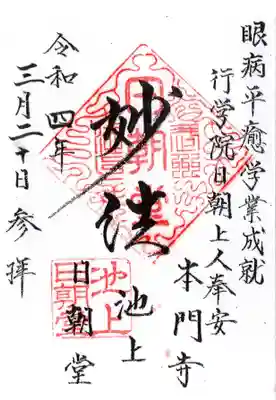 眼病平癒学業成就
行学院日朝上人奉安
本門寺
池上
妙法
日朝堂
令和四年
三月二十日参拝
池上
日朝堂